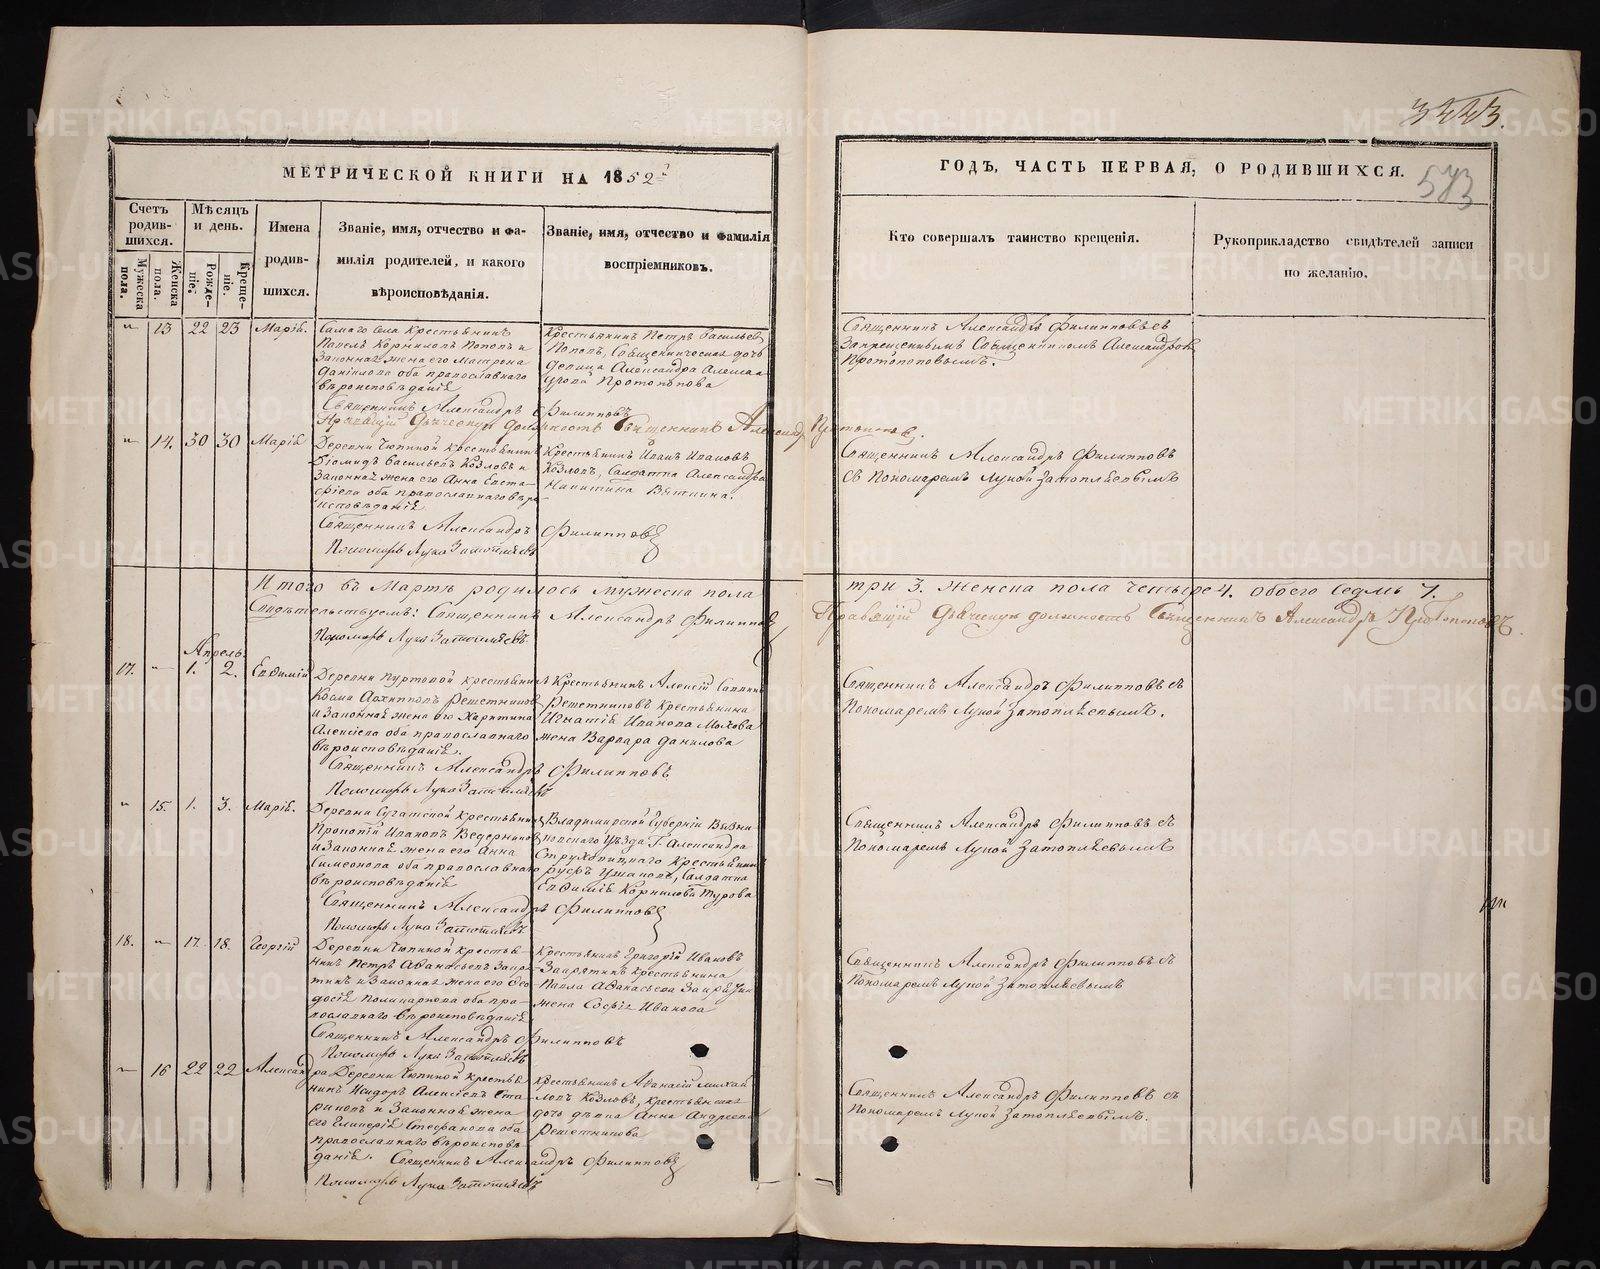 3443.
МЕТРИЧЕСКОЙ КНИГИ НА 1852й
ГОДЪ, ЧАСТЬ ПЕРВАЯ, О РОДИВШИХСЯ.
583
Счетъ родив-шихся.
Мужеска пола.
Женска пола.
Мѣсяцъ и день.
Рожде-ніе.
Креще-ніе.
Имена родив-шихся.
Званіе, имя, отчество и фа-
милія родителей, и какого
вѣроисповѣданія.
Званіе, имя, отчество и фамилія
воспріемниковъ.
Кто совершалъ таинство крещенія.
Рукоприкладство свидѣтелей записи
по желанію.
13 22 23 Марія.
Самаго села крестьянинъ
Павелъ Корниловъ Поповъ и
Законная жена его Матрона
Данилова оба православнаго
вѣроисповѣданія
Крестьянинъ Петръ Васильевъ
Поповъ, Священническая дочь
девица Александра Алекса
Протопопова
Священникъ Александръ Филипповъ съ
Запрещеннымъ Священникомъ Александромъ
Протопоповымъ.
Священникъ Александръ Филипповъ
Правящій Дьяческую должность Священникъ Александръ Протопоповъ.
14. 30 30 Марія
Деревни крестьянинъ
Діомидъ Васильевъ Козловъ и
Законная жена его Анна Евста-
фіева оба православнаго вѣро
исповѣданія
Крестьянинъ Иванъ Ивановъ
Козловъ, Салдатка Александра
Никитина Вяткина.
Священникъ Александръ Филипповъ
съ Пономаремъ Лукой Затопляевымъ
Священникъ Александръ Филипповъ
Пономарь Лука Затопляевъ
Итого въ Мартѣ родилось мужеска пола три 3. женска пола четыре 4. обоего седмь 7.
Свидѣтельствуемъ: Священникъ Александръ Филипповъ
Правящій Дьяческую должность Священникъ Александръ Протопоповъ.
Пономарь Лука Затопляевъ
Апрель.
17. 1. 2. Евфимій
Деревни крестьянинъ
Козма Архиповъ Решетниковъ
и Законная жена его Харитина
Алексіева оба православнаго
вѣроисповѣданія.
Крестьянинъ Алексій Саввинъ
Решетниковъ крестьянина
Игнатія Иванова Мохова
жена Варвара Данилова
Священникъ Александръ Филипповъ съ
Пономаремъ Лукой Затопляевымъ.
Священникъ Александръ Филипповъ
Пономарь Лука Затопляевъ
15. 1. 3. Марія.
Деревни крестьянинъ
Прокопій Ивановъ Ведерниковъ
и Законная жена его Анна
Симеонова оба православнаго
вѣроисповѣданія
Владимирской Губерніи Вязни-
ковскаго Уѣзда Г. Александра
крестьянинъ
Ушаковъ, Салдатка
Евфимія Корнилова Турова
Священникъ Александръ Филипповъ съ
Пономаремъ Лукой Затопляевымъ
Священникъ Александръ Филипповъ
Пономарь Лука Затопляевъ
18. 17. 18. Георгій
Деревни крестья-
нинъ Петръ Аѳанасьевъ
и Законная жена его Ѳео-
досія Поликарпова оба пра-
вославнаго вѣроисповѣданія
Крестьянинъ Григорій Ивановъ
крестьянина
Павла Аѳанасьева
жена Софія Иванова
Священникъ Александръ Филипповъ съ
Пономаремъ Лукой Затопляевымъ
Священникъ Александръ Филипповъ
Пономарь Лука Затопляевъ
16 22 22 Александра
Деревни крестья
нинъ Исидоръ Алексіевъ Ста-
риковъ и Законная жена
его Гликерія Стефанова оба
православнаго вѣроисповѣ
данія.
Крестьянинъ Аѳанасій Михай
ловъ Козловъ, крестьянская
дочь дѣвка Анна Андреева
Решетникова
Священникъ Александръ Филипповъ съ
Пономаремъ Лукой Затопляевымъ.
Священникъ Александръ Филипповъ
Пономарь Лука Затопляевъ
METRIKI.GASO-URAL.RU